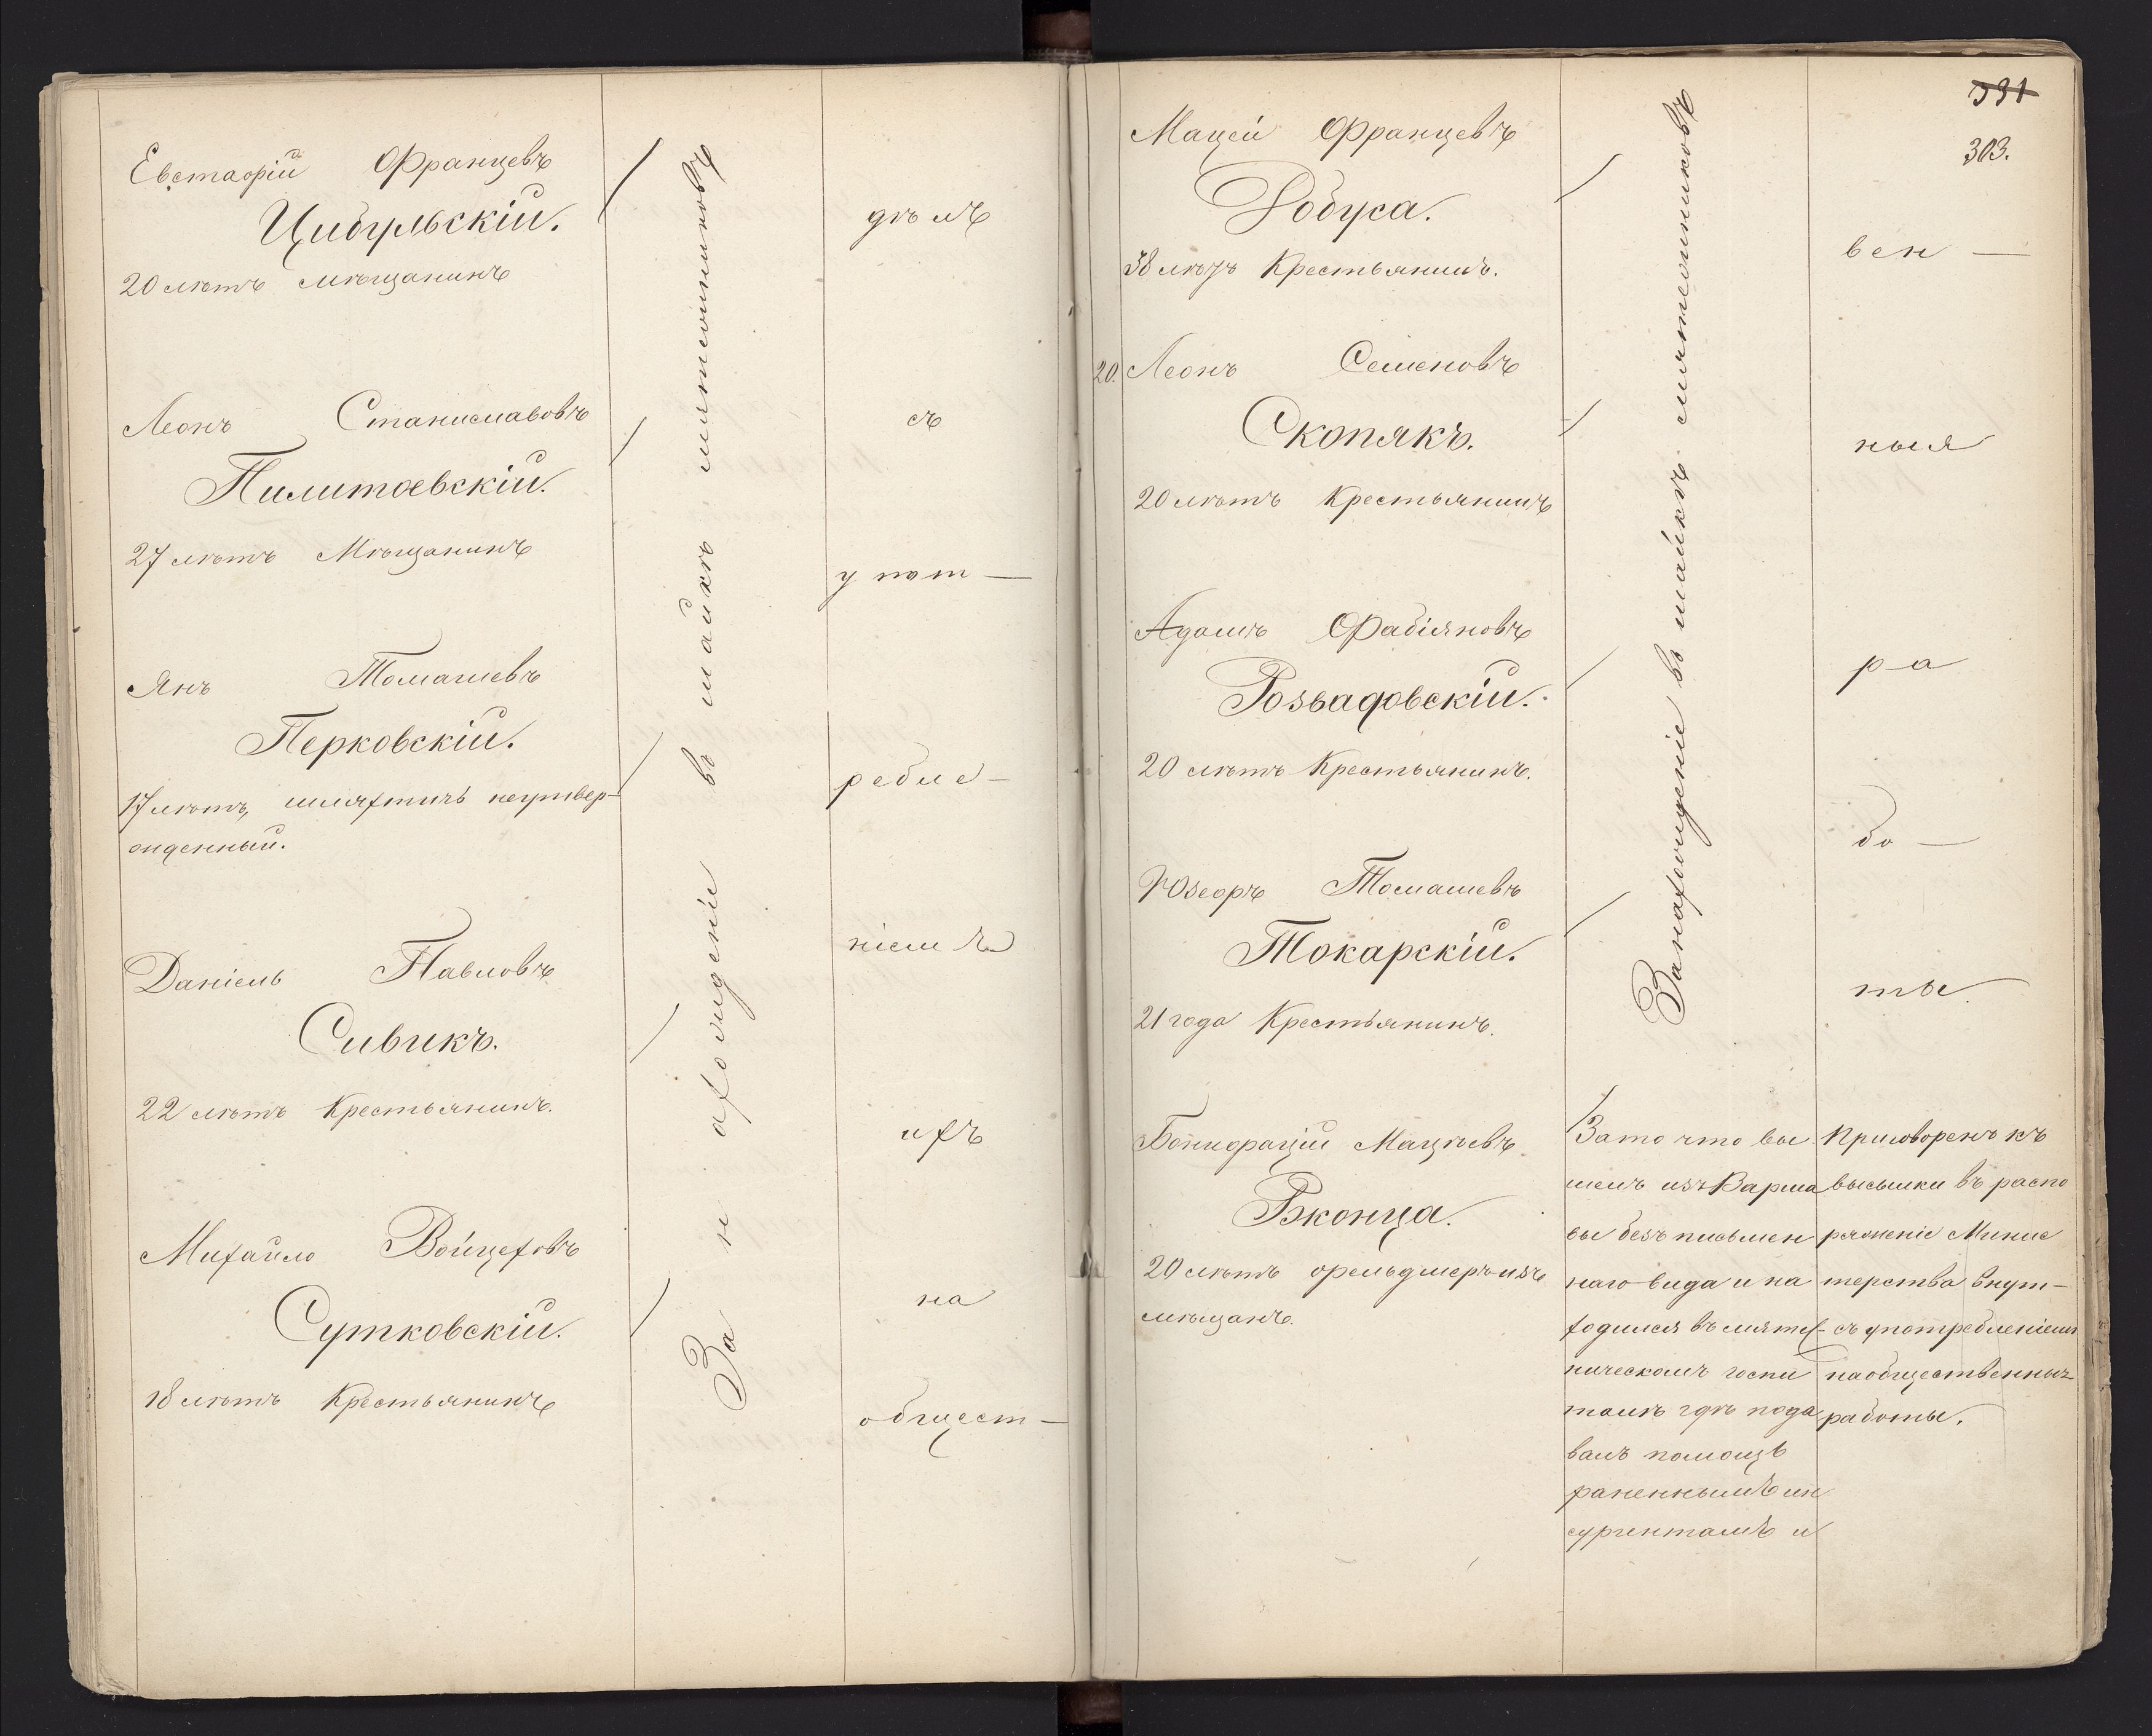 Евстафій Францевъ
Цибульскій.
20 лѣтъ мѣщанинъ
Леонъ Станиславовъ
Пилитовскій.
27 лѣтъ Мѣщанинъ
Янъ Томашевъ
Перковскій.
17 лѣтъ, шляхтичъ неутвер-
жденный.
Даніель Павловъ
Сивикъ.
22 лѣтъ Крестьянинъ.
Михайло Войцеховъ
Сутковскій.
18 лѣтъ Крестьянинъ
За нахожденіе въ шайкѣ мятежниковъ
дѣлъ
съ
упот-
ребле-
ніемъ
ихъ
на
общест-
331
303.
Мацей Францевъ
Добуса.
38 лѣтъ Крестьянинъ.
20. Леонъ Семеновъ
Скопякъ.
20 лѣтъ Крестьянинъ
Адамъ Фабіяновъ
Розвадовскій.
20 лѣтъ Крестьянинъ.
Юзефъ Томашевъ
Токарскій.
21 года Крестьянинъ.
Бонифацій Мацѣевъ
Рконца.
20 лѣтъ фельдшеръ изъ
мѣщанъ.
За нахожденіе въ шайкѣ мятежниковъ
За то что вы
шелъ изъ Варша
вы безъ письмен
наго вида и на
ходился въ мятеж-
ническомъ госпи
талѣ гдѣ пода
валъ помощь
раненнымъ ин
сургентамъ и
вен-
ныя
ра
бо-
ты
Приговоренъ къ
высылки въ распо
ряженіе Минис
терства внут-
съ употребленіемъ
на общественныя
работы.